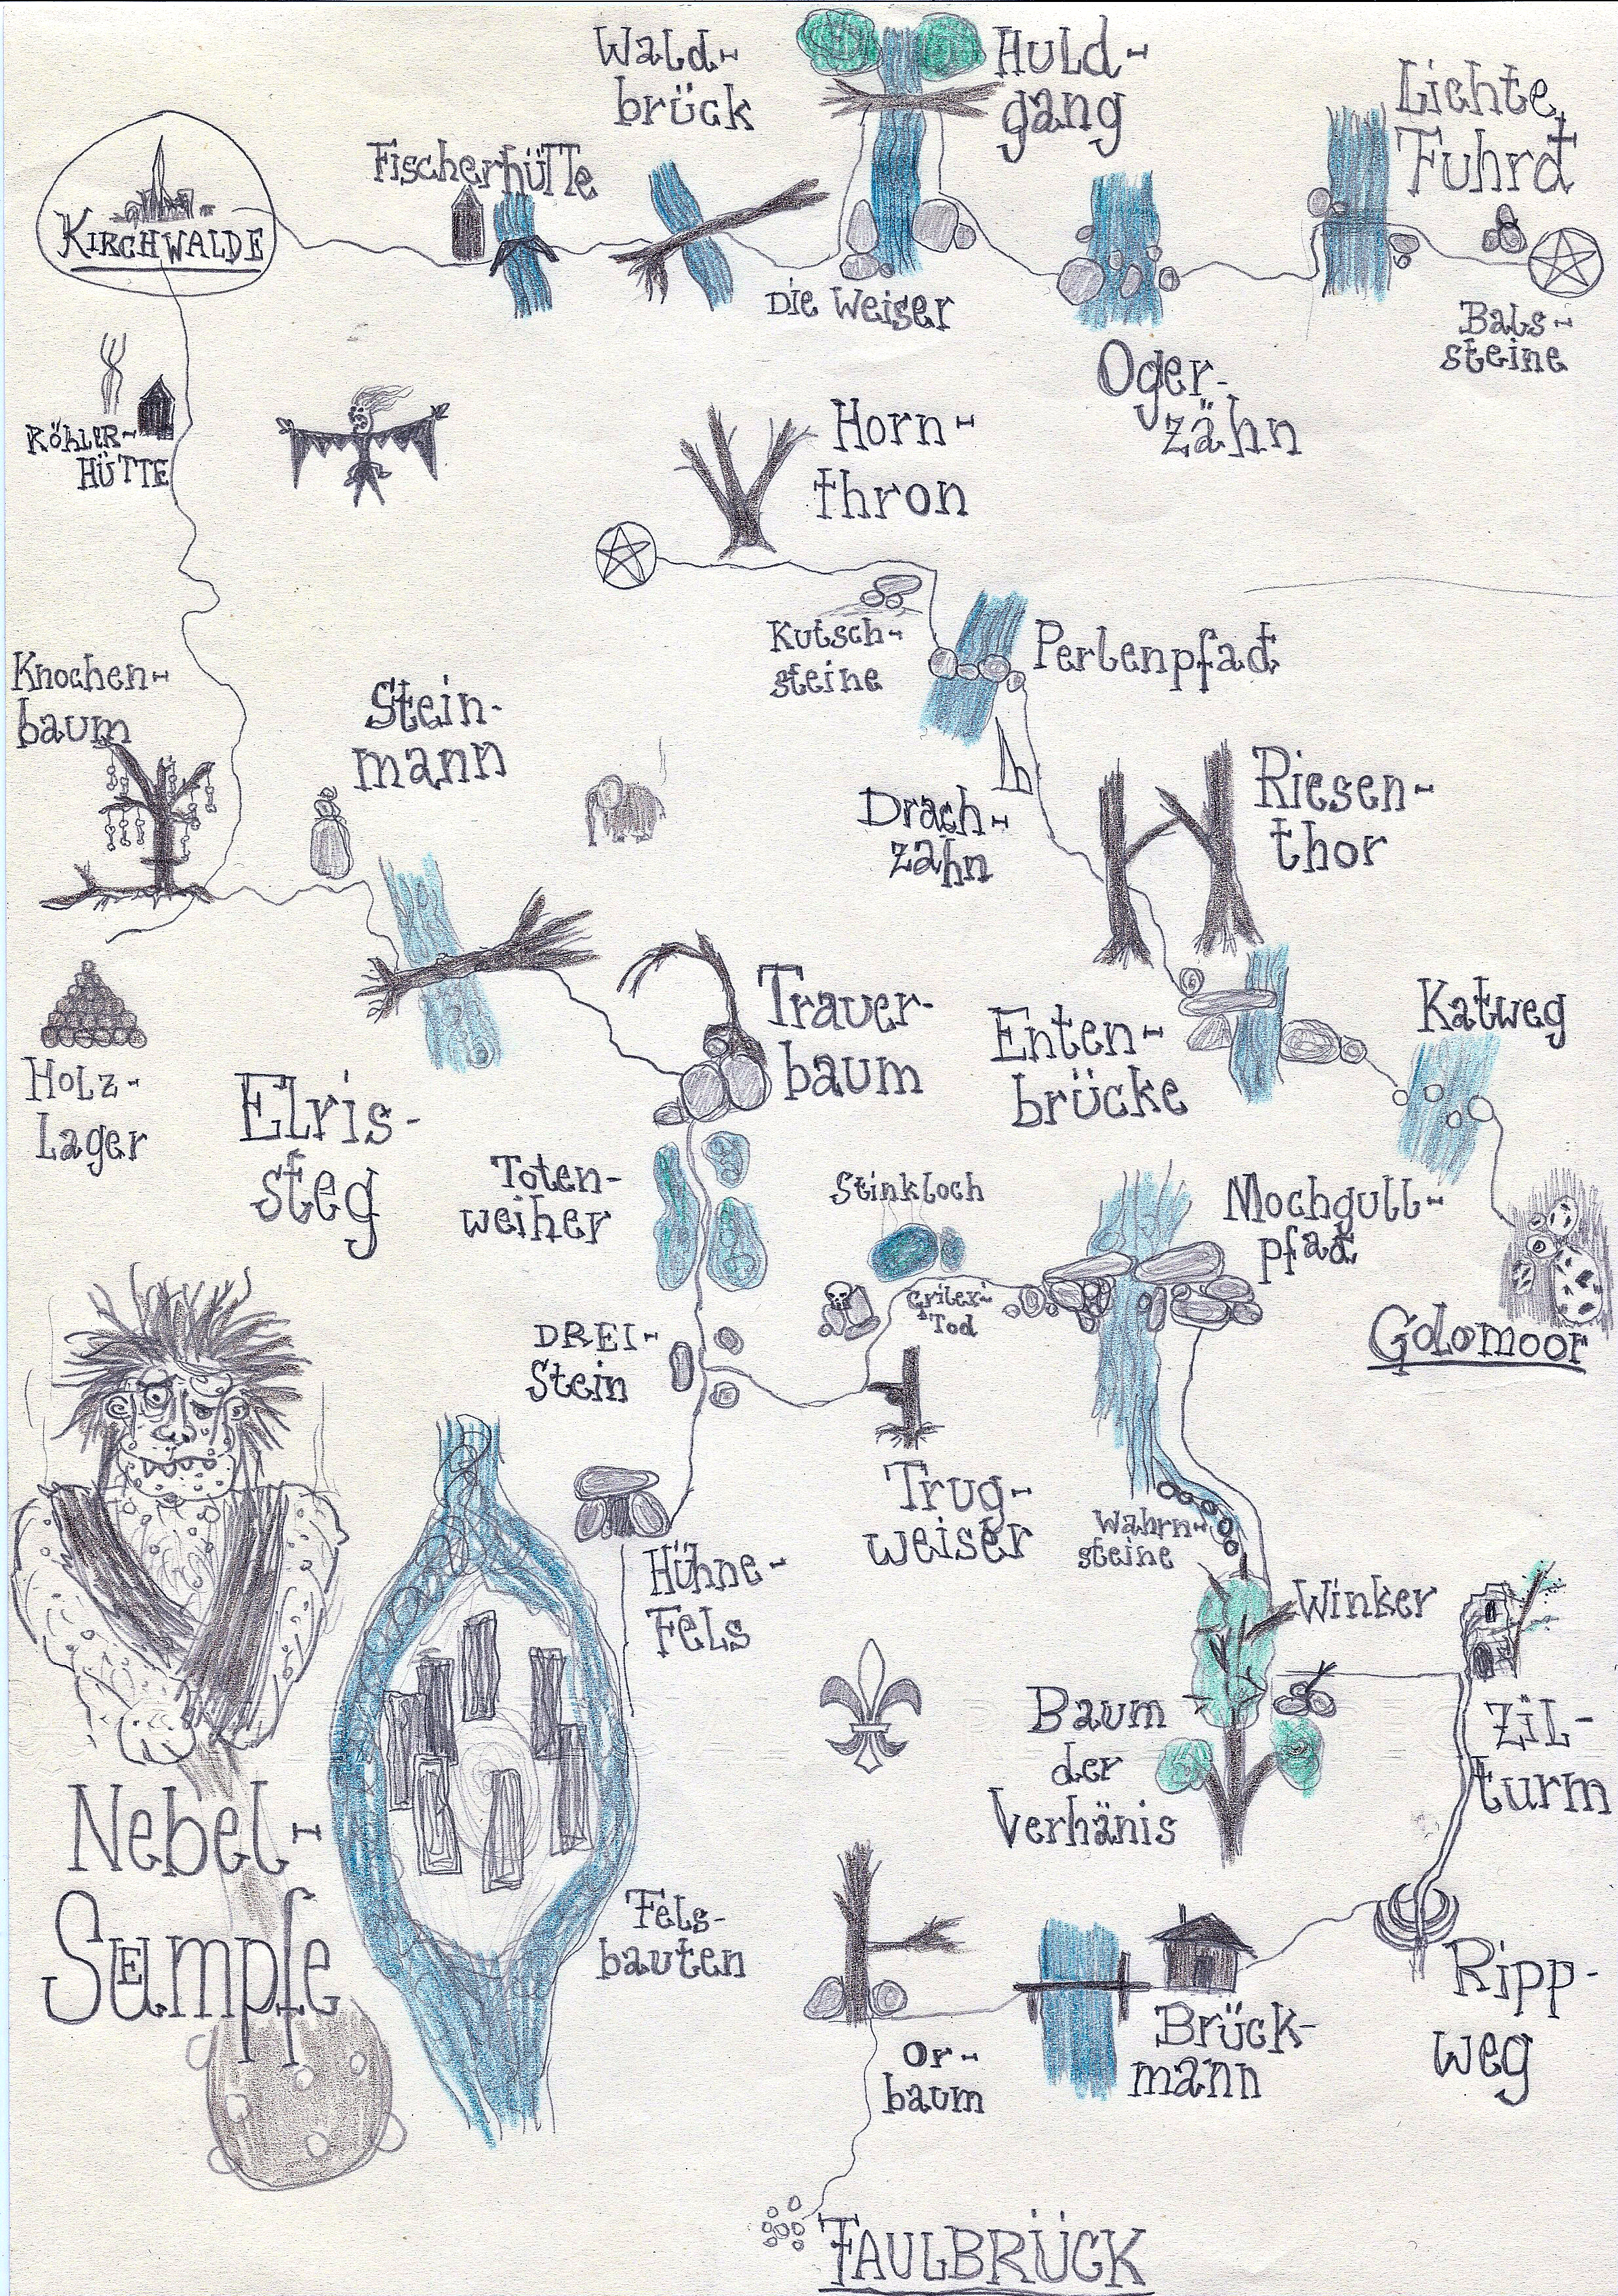 Wald-
brück
Huld-
gang
Lichte
Fuhrd
Fischerhütte
KIRCHWALDE
Die Weiser
Bals-
steine
Oger-
zähn
KÖHLER-
HÜTTE
Horn-
thron
Kutsch-
steine
Perlenpfad
Knochen-
baum
Stein-
mann
Drach-
zahn
Riesen-
thor
Trauer-
baum
Enten-
brücke
Katweg
Holz-
Lager
Elris-
steg
Toten-
weiher
Stinkloch
Mochgull-
pfad
Tod
Golomoor
DREI-
Stein
Trug-
weiser
Wahrn-
steine
Hühne-
Fels
Winker
Baum
der
Verhänis
Zil-
turm
Nebel-
Sümpfe
Fels-
bauten
Or-
baum
Brück-
mann
Ripp-
weg
FAULBRÜCK